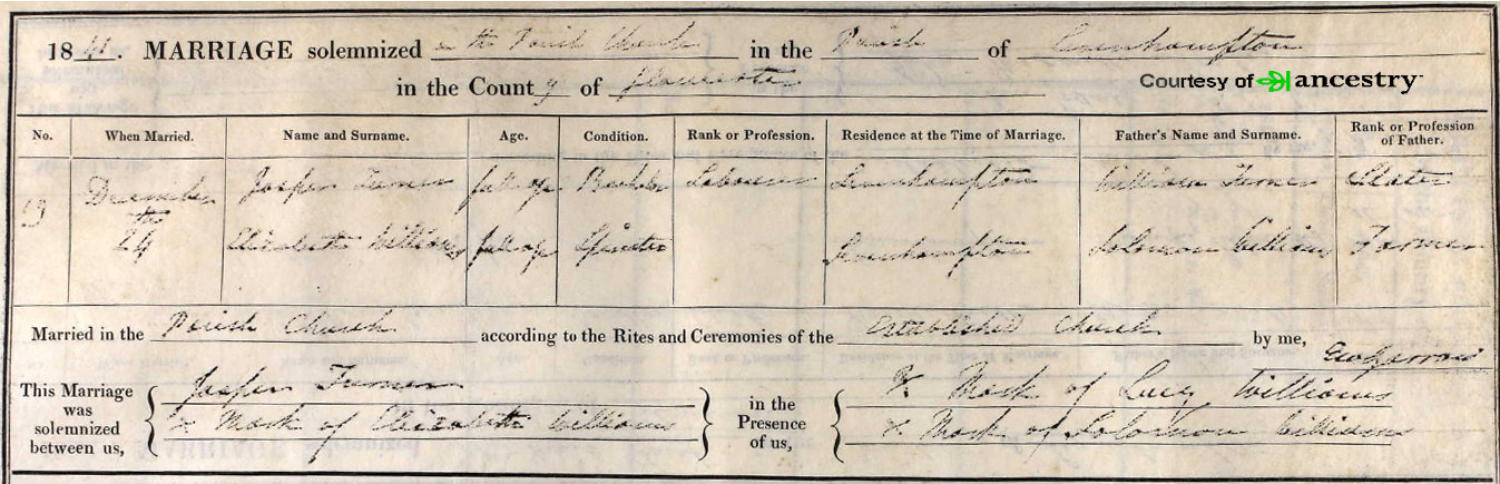 1841. MARRIAGE solemnized in the Parish Church in the Parish of Sevenhampton
in the County of Gloucester
Courtesy of ancestry
No. When Married. Name and Surname. Age. Condition. Rank or Profession. Residence at the Time of Marriage. Father's Name and Surname. Rank or Profession of Father.
19 December 24th Jasper Turner full age Bachelor Labourer Sevenhampton William Turner Slater
Elizabeth Williams full age Spinster Sevenhampton Solomon Williams Farmer
Married in the Parish Church according to the Rites and Ceremonies of the Established Church by me,
This Marriage was solemnized between us, Jasper Turner in the Presence of us, X Mark of Lucy Williams
X Mark of Elizabeth Williams X Mark of Solomon Williams